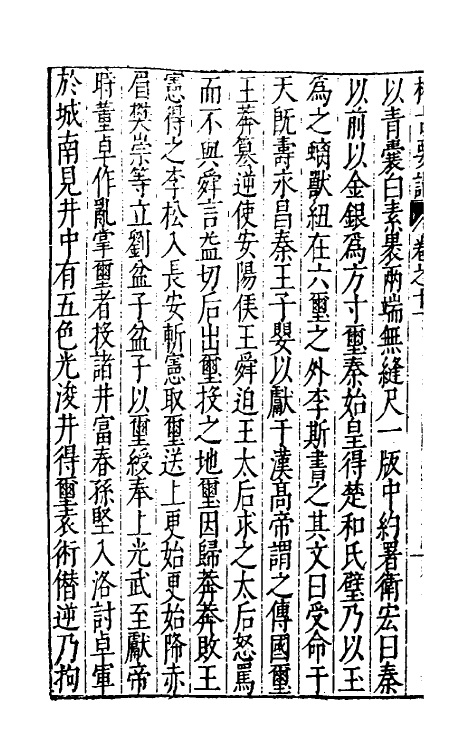 以青囊白素裹兩端無縫尺一版中約署衛宏曰秦
以前以金銀為方寸璽秦始皇得楚和氏璧乃以玉
為之螭獸紐在六璽之外李斯書之其文曰受命于
天既壽永昌秦王子嬰以獻于漢高帝謂之傳國璽
王莽篡逆使安陽侯王舜迫王太后求之太后怒罵
而不與舜言益切后出璽投之地璽因歸莽莽敗王
憲得之李松入長安斬憲取璽送上更始更始降赤
眉樊崇等立劉盆子盆子以璽綬奉上光武至獻帝
時董卓作亂掌璽者投諸井富春孫堅入洛討卓軍
於城南見井中有五色光浚井得璽袁術僭逆乃拘